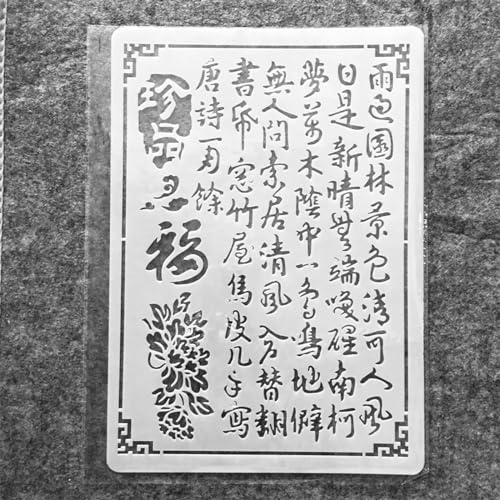 雨過園林景色清可人風
日是新晴無端喚醒南柯
夢萬木陰中一鳥鳴地僻
無人問索居清風入戶替翻
書帋窓竹屋烏皮几手寫
唐詩一百餘
珍品多福